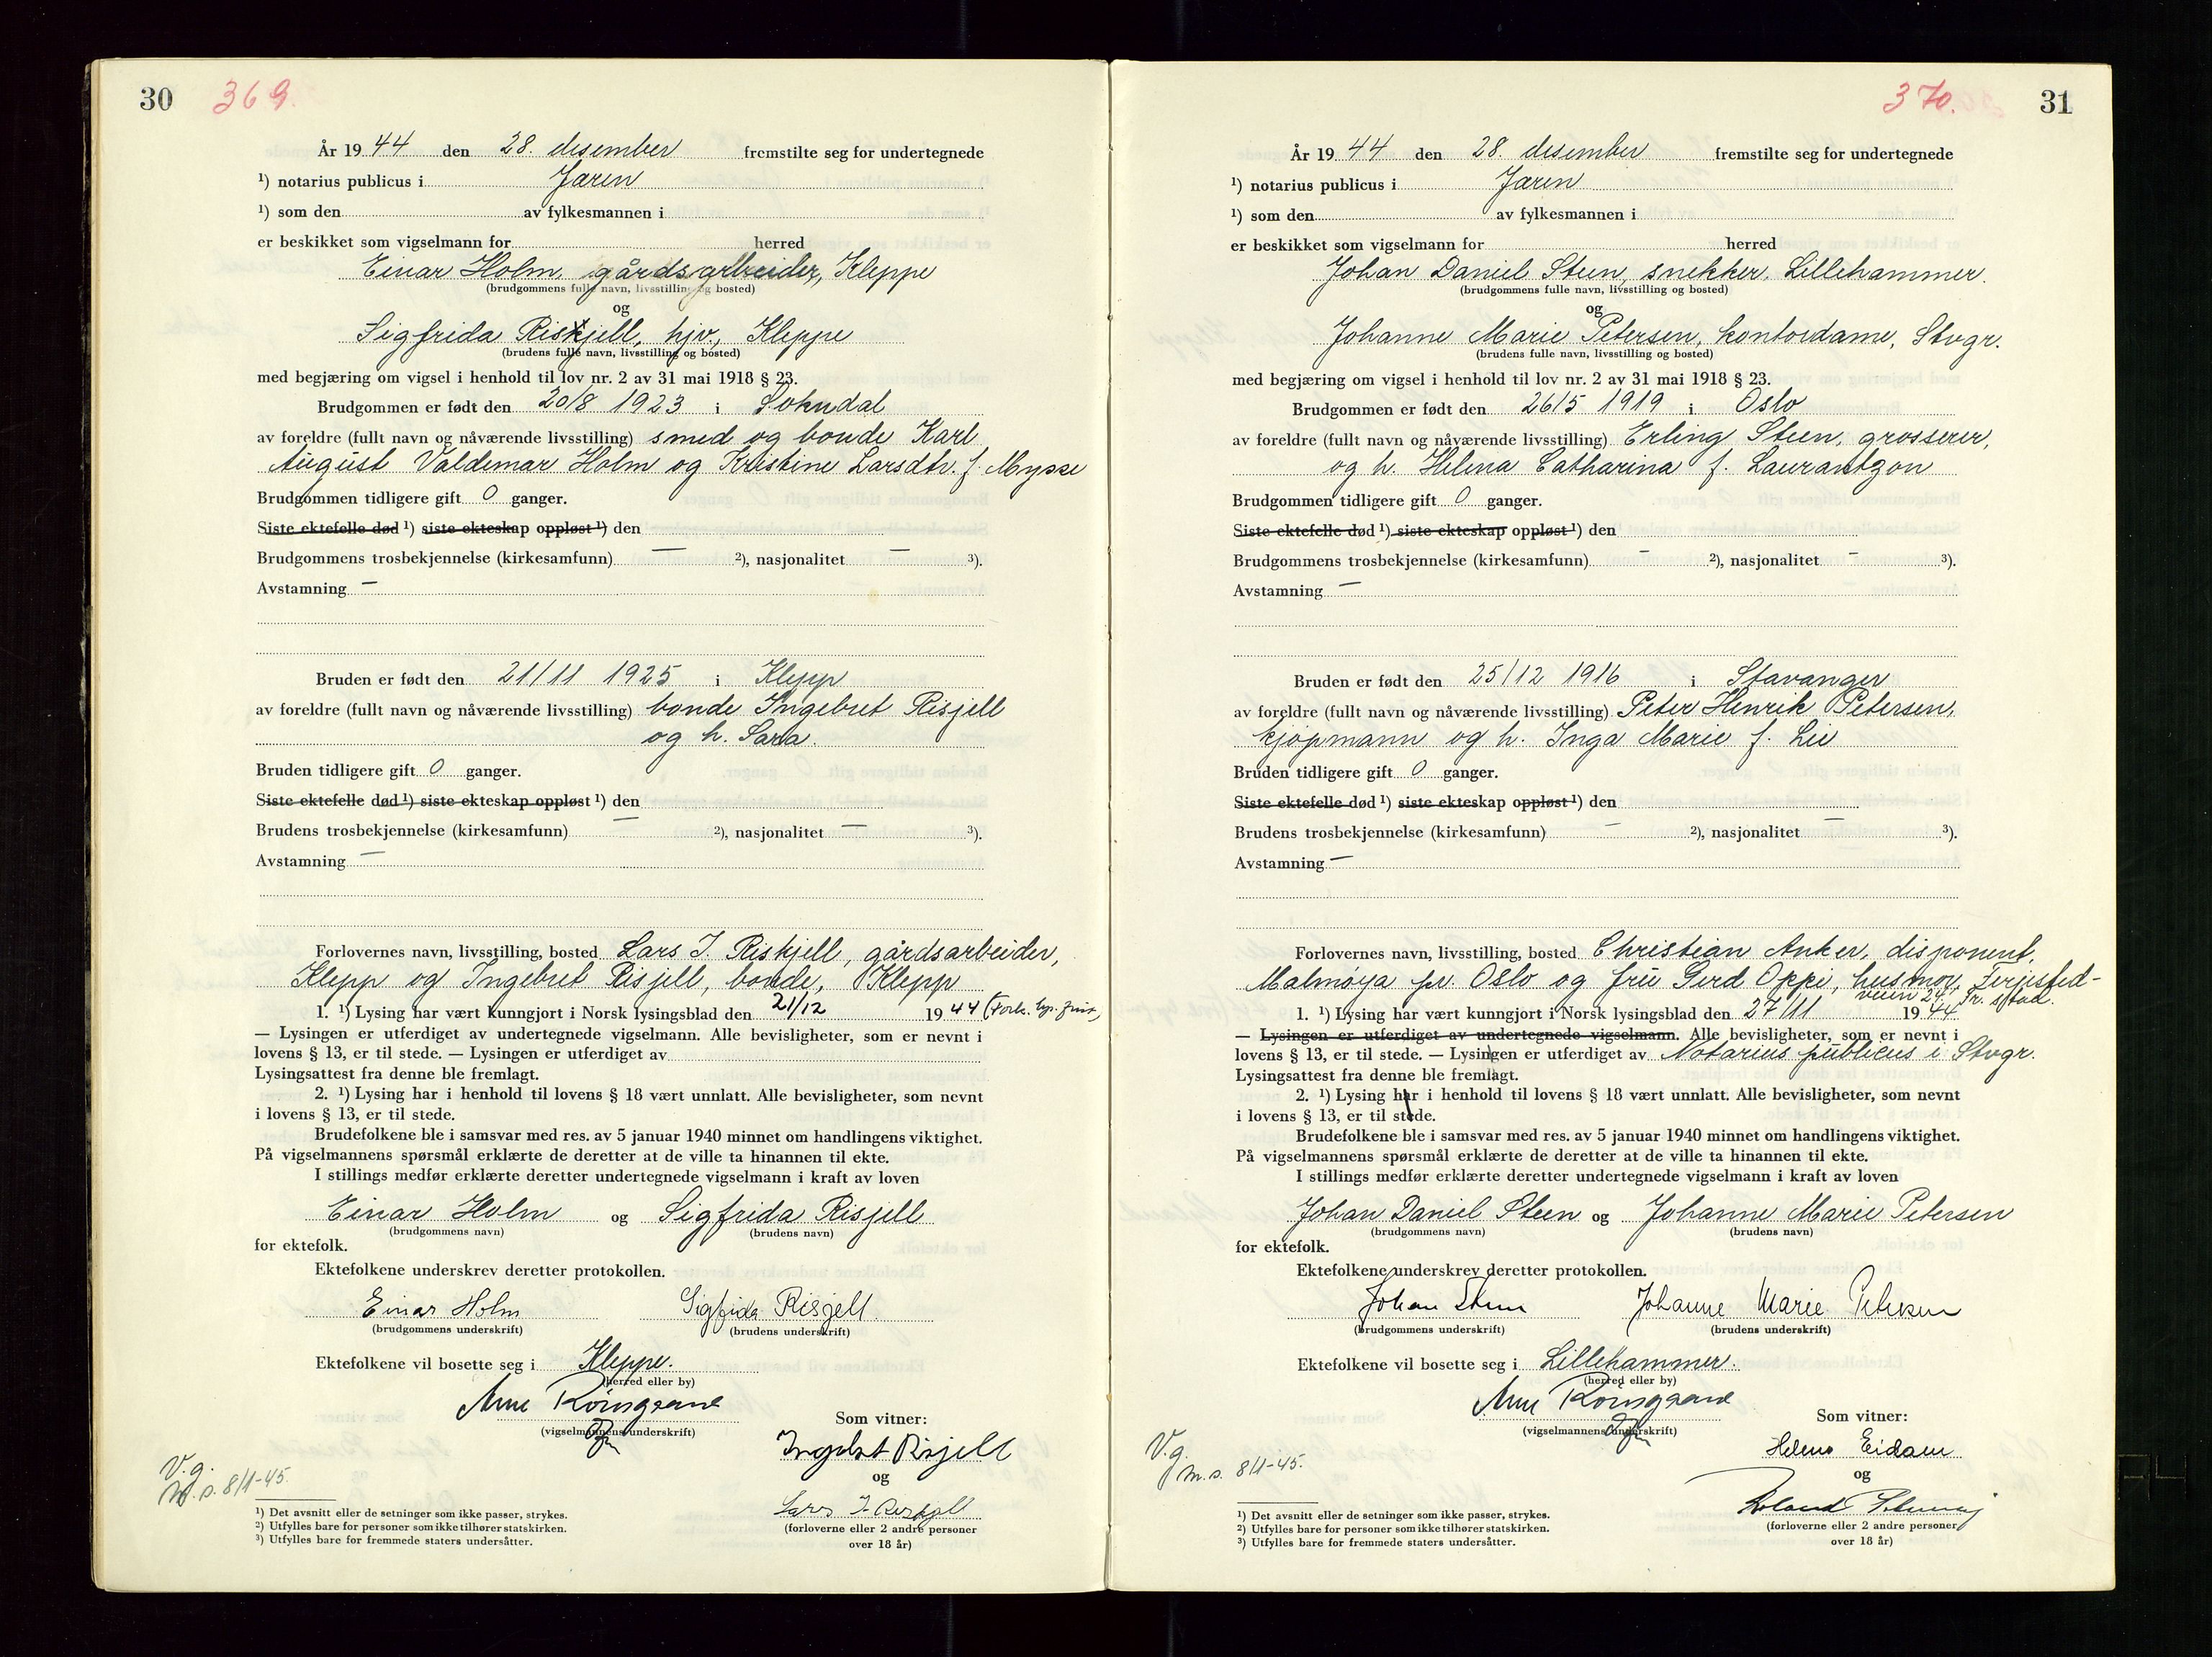 30 369.
År 19 44 den 28. desember fremstilte seg for undertegnede
¹) notarius publicus i Jæren
¹) som den av fylkesmannen i
er beskikket som vigselmann for herred
Einar Holm, gårdsarbeider, Kleppe
(brudgommens fulle navn, livsstilling og bosted)
og
Sigfrida Riskjell, hjv., Kleppe
(brudens fulle navn, livsstilling og bosted)
med begjæring om vigsel i henhold til lov nr. 2 av 31 mai 1918 § 23.
Brudgommen er født den 20/8 1923 i Sokndal
av foreldre (fullt navn og nåværende livsstilling) smed og bonde Karl
August Valdemar Holm og Kristine Larsdtr. f. Mysse
Brudgommen tidligere gift 0 ganger.
Siste ektefelle død ¹) siste ekteskap oppløst ¹) den
Brudgommens trosbekjennelse (kirkesamfunn) — ²), nasjonalitet — ³).
Avstamning —
Bruden er født den 21/11 1925 i Klepp
av foreldre (fullt navn og nåværende livsstilling) bonde Ingebret Risjell
og h. Sara.
Bruden tidligere gift 0 ganger.
Siste ektefelle død ¹) siste ekteskap oppløst ¹) den
Brudens trosbekjennelse (kirkesamfunn) — ²), nasjonalitet — ³).
Avstamning —
Forlovernes navn, livsstilling, bosted Lars I. Riskjell, gårdsarbeider,
Klepp og Ingebret Risjell, bonde, Klepp
1. ¹) Lysing har vært kunngjort i Norsk lysingsblad den 21/12 19 44 (Fork. lys. frist)
— Lysingen er utferdiget av undertegnede vigselmann. Alle bevisligheter, som er nevnt i
lovens § 13, er til stede. — Lysingen er utferdiget av
Lysingsattest fra denne ble fremlagt.
2. ¹) Lysing har i henhold til lovens § 18 vært unnlatt. Alle bevisligheter, som nevnt
i lovens § 13, er til stede.
Brudefolkene ble i samsvar med res. av 5 januar 1940 minnet om handlingens viktighet.
På vigselmannens spørsmål erklærte de deretter at de ville ta hinannen til ekte.
I stillings medfør erklærte deretter undertegnede vigselmann i kraft av loven
Einar Holm og Sigfrida Risjell
(brudgommens navn) (brudens navn)
for ektefolk.
Ektefolkene underskrev deretter protokollen.
Einar Holm Sigfrida Risjell
(brudgommens underskrift) (brudens underskrift)
Ektefolkene vil bosette seg i Kleppe.
(herred eller by)
(vigselmannens underskrift)
Som vitner:
Ingebret Risjell
og
Lars I Riskjell
(forloverne eller 2 andre personer
over 18 år)
V.g.
M.s. 8/1-45.
¹) Det avsnitt eller de setninger som ikke passer, strykes.
²) Utfylles bare for personer som ikke tilhører statskirken.
³) Utfylles bare for fremmede staters undersåtter.
370. 31
År 19 44 den 28. desember fremstilte seg for undertegnede
¹) notarius publicus i Jæren
¹) som den av fylkesmannen i
er beskikket som vigselmann for herred
Johan Daniel Steen, snekker, Lillehammer.
(brudgommens fulle navn, livsstilling og bosted)
og
Johanne Marie Petersen, kontordame, Stvgr.
(brudens fulle navn, livsstilling og bosted)
med begjæring om vigsel i henhold til lov nr. 2 av 31 mai 1918 § 23.
Brudgommen er født den 26/5 1919 i Oslo
av foreldre (fullt navn og nåværende livsstilling) Erling Steen, grosserer,
og h. Helena Catharina f. Laurantzon
Brudgommen tidligere gift 0 ganger.
Siste ektefelle død ¹) siste ekteskap oppløst ¹) den
Brudgommens trosbekjennelse (kirkesamfunn) — ²), nasjonalitet — ³).
Avstamning —
Bruden er født den 25/12 1916 i Stavanger
av foreldre (fullt navn og nåværende livsstilling) Peter Henrik Petersen,
kjøpmann og h. Inga Marie f. Lie
Bruden tidligere gift 0 ganger.
Siste ektefelle død ¹) siste ekteskap oppløst ¹) den
Brudens trosbekjennelse (kirkesamfunn) — ²), nasjonalitet — ³).
Avstamning —
Forlovernes navn, livsstilling, bosted Christian Anker, disponent,
Malmøya pr. Oslo og frü Gerd Oppi, husmor, Terjested-
veien 24. Fr. stad.
1. ¹) Lysing har vært kunngjort i Norsk lysingsblad den 27/11 19 44
— Lysingen er utferdiget av undertegnede vigselmann. Alle bevisligheter, som er nevnt i
lovens § 13, er til stede. — Lysingen er utferdiget av Notarius publicus i Stvgr.
Lysingsattest fra denne ble fremlagt.
2. ¹) Lysing har i henhold til lovens § 18 vært unnlatt. Alle bevisligheter, som nevnt
i lovens § 13, er til stede.
Brudefolkene ble i samsvar med res. av 5 januar 1940 minnet om handlingens viktighet.
På vigselmannens spørsmål erklærte de deretter at de ville ta hinannen til ekte.
I stillings medfør erklærte deretter undertegnede vigselmann i kraft av loven
Johan Daniel Steen og Johanne Marie Petersen
(brudgommens navn) (brudens navn)
for ektefolk.
Ektefolkene underskrev deretter protokollen.
Johan Steen Johanne Marie Petersen
(brudgommens underskrift) (brudens underskrift)
Ektefolkene vil bosette seg i Lillehammer.
(herred eller by)
(vigselmannens underskrift)
Som vitner:
Helene Eidam
og
(forloverne eller 2 andre personer
over 18 år)
V.g.
M.s. 8/1-45.
¹) Det avsnitt eller de setninger som ikke passer, strykes.
²) Utfylles bare for personer som ikke tilhører statskirken.
³) Utfylles bare for fremmede staters undersåtter.